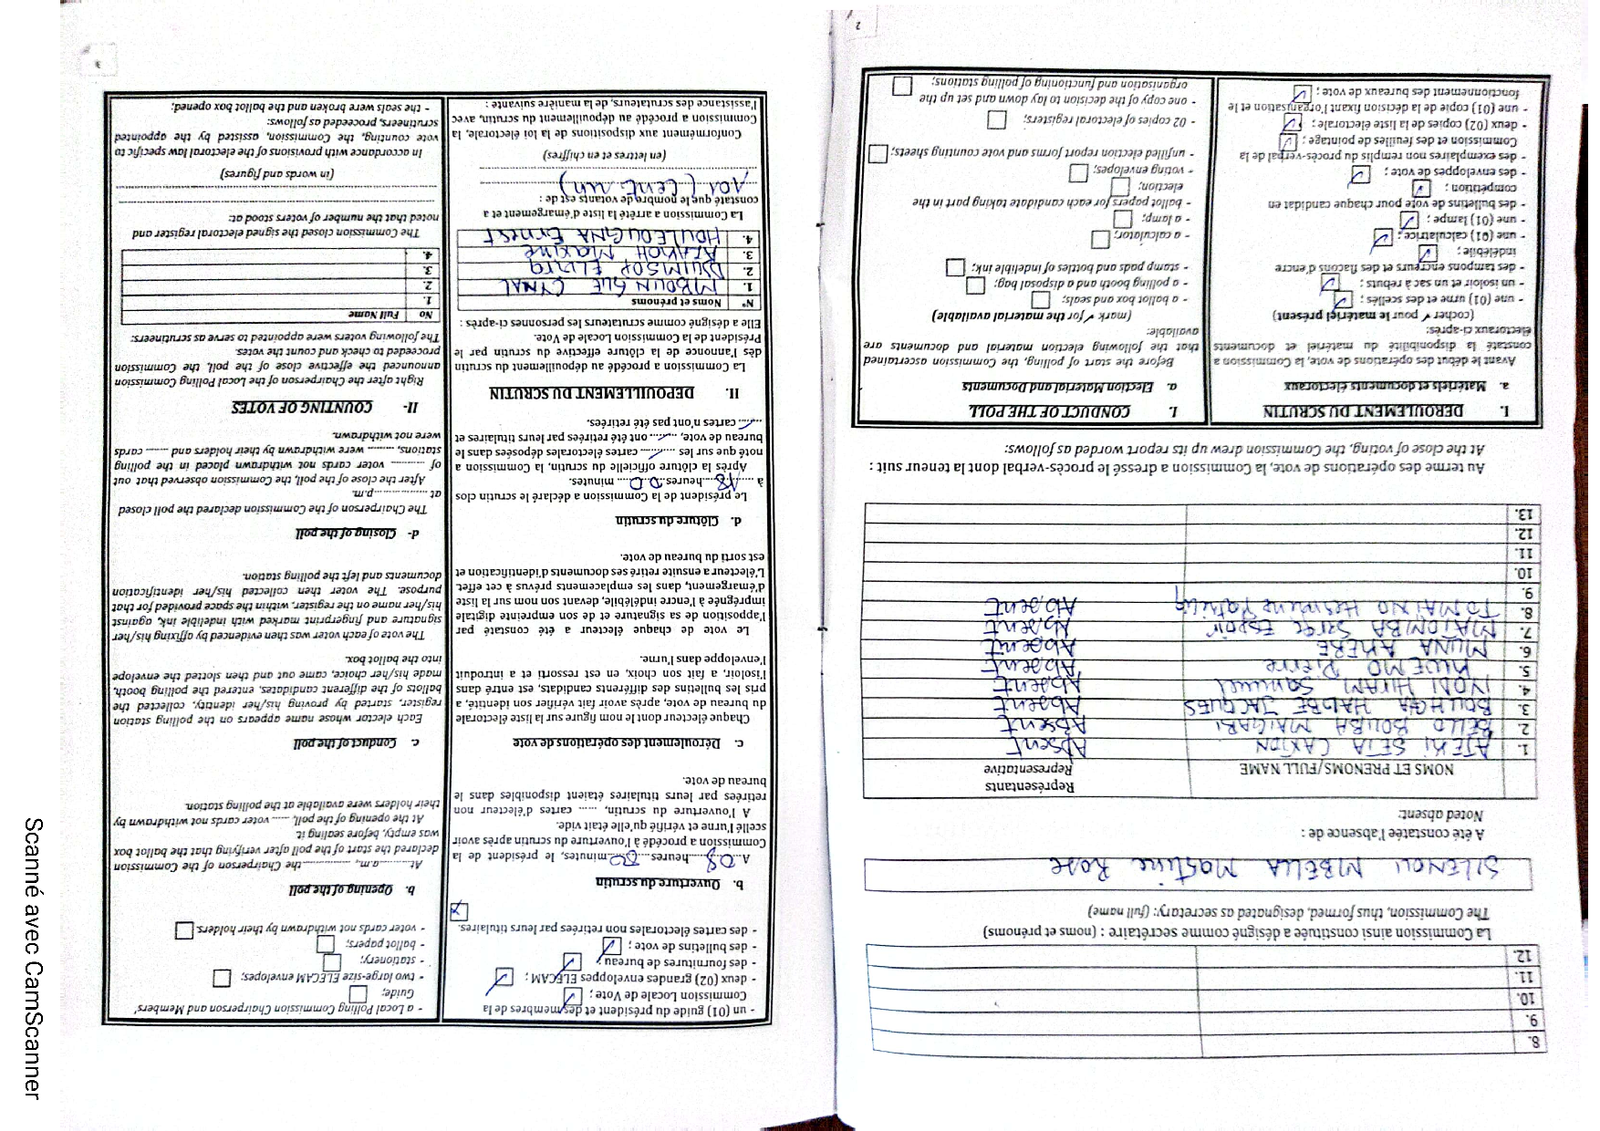 8.
9.
10.
11.
12.
La Commission ainsi constituée a désigné comme secrétaire : (noms et prénoms)
The Commission, thus formed, designated as secretary: (full name)
SILENOU MBELLA Martine Rose
A été constatée l'absence de :
Noted absent:
NOMS ET PRENOMS/FULL NAME
Représentants
Representative
1. ATEKI SETA CAXTON Absent
2. BELLO BOUBA MAIGARI Absent
3. BOUHGA HAGBE JACQUES Absent
4. IYODI HIRAM Samuel Absent
5. KWEMO Pierre Absent
6. MUNA AKERE Absent
7. MATOMBA SERGE ESPOIR Absent
8. TOMAINO Hermine Patricia Absent
9.
10.
11.
12.
13.
Au terme des opérations de vote, la Commission a dressé le procès-verbal dont la teneur suit :
At the close of voting, the Commission drew up its report worded as follows:
I. DEROULEMENT DU SCRUTIN
a. Matériels et documents électoraux
Avant le début des opérations de vote, la Commission a
constaté la disponibilité du matériel et documents
électoraux ci-après:
(cocher ✓ pour le matériel présent)
- une (01) urne et des scellés ;
- un isoloir et un sac à rebuts ;
- des tampons encreurs et des flacons d'encre
indélébile ;
- une (01) calculatrice ;
- une (01) lampe ;
- des bulletins de vote pour chaque candidat en
compétition ;
- des enveloppes de vote ;
- des exemplaires non remplis du procès-verbal de la
Commission et des feuilles de pointage ;
- deux (02) copies de la liste électorale ;
- une (01) copie de la décision fixant l'organisation et le
fonctionnement des bureaux de vote ;
I. CONDUCT OF THE POLL
a. Election Material and Documents
Before the start of polling, the Commission ascertained
that the following election material and documents are
available:
(mark ✓ for the material available)
- a ballot box and seals;
- a polling booth and a disposal bag;
- stamp pads and bottles of indelible ink;
- a calculator;
- a lamp;
- ballot papers for each candidate taking part in the
election;
- voting envelopes;
- unfilled election report forms and vote counting sheets;
- 02 copies of electoral registers;
- one copy of the decision to lay down and set up the
organisation and functioning of polling stations;
2
- un (01) guide du président et des membres de la
Commission Locale de Vote ;
- deux (02) grandes enveloppes ELECAM ;
- des fournitures de bureau ;
- des bulletins de vote ;
- des cartes électorales non retirées par leurs titulaires.
b. Ouverture du scrutin
A 08 heures 00 minutes, le président de la
Commission a procédé à l'ouverture du scrutin après avoir
scellé l'urne et vérifié qu'elle était vide.
A l'ouverture du scrutin, ...... cartes d'électeur non
retirées par leurs titulaires étaient disponibles dans le
bureau de vote.
c. Déroulement des opérations de vote
Chaque électeur dont le nom figure sur la liste électorale
du bureau de vote, après avoir fait vérifier son identité, a
pris les bulletins des différents candidats, est entré dans
l'isoloir, a fait son choix, en est ressorti et a introduit
l'enveloppe dans l'urne.
Le vote de chaque électeur a été constaté par
l'apposition de sa signature et de son empreinte digitale
imprégnée à l'encre indélébile, devant son nom sur la liste
d'émargement, dans les emplacements prévus à cet effet.
L'électeur a ensuite retiré ses documents d'identification et
est sorti du bureau de vote.
d. Clôture du scrutin
Le président de la Commission a déclaré le scrutin clos
à 18 heures 00 minutes.
Après la clôture officielle du scrutin, la Commission a
noté que sur les ...... cartes électorales déposées dans le
bureau de vote, ...... ont été retirées par leurs titulaires et
...... cartes n'ont pas été retirées.
II. DEPOUILLEMENT DU SCRUTIN
La Commission a procédé au dépouillement du scrutin
dès l'annonce de la clôture effective du scrutin par le
Président de la Commission Locale de Vote.
Elle a désigné comme scrutateurs les personnes ci-après :
N° Noms et prénoms
1. MBOUNGUE CYNAL
2. DJUIMSOP ELVIRA
3. MAXIME
4. HOULEOUGNA Ernest
La Commission a arrêté la liste d'émargement et a
constaté que le nombre de votants est de :
101 (Cent un)
(en lettres et en chiffres)
Conformément aux dispositions de la loi électorale, la
Commission a procédé au dépouillement du scrutin, avec
l'assistance des scrutateurs, de la manière suivante :
- a Local Polling Commission Chairperson and Members'
Guide;
- two large-size ELECAM envelopes;
- stationery;
- ballot papers;
- voter cards not withdrawn by their holders.
b. Opening of the poll
At..........a.m, ..............the Chairperson of the Commission
declared the start of the poll after verifying that the ballot box
was empty, before sealing it.
At the opening of the poll, ...... voter cards not withdrawn by
their holders were available at the polling station.
c. Conduct of the poll
Each elector whose name appears on the polling station
register, started by proving his/her identity, collected the
ballots of the different candidates, entered the polling booth,
made his/her choice, came out and then slotted the envelope
into the ballot box.
The vote of each voter was then evidenced by affixing his/her
signature and fingerprint marked with indelible ink, against
his/her name on the register, within the space provided for that
purpose. The voter then collected his/her identification
documents and left the polling station.
d- Closing of the poll
The Chairperson of the Commission declared the poll closed
at................p.m.
After the close of the poll, the Commission observed that out
of .......... voter cards not withdrawn placed in the polling
stations, ........ were withdrawn by their holders and ....... cards
were not withdrawn.
II- COUNTING OF VOTES
Right after the Chairperson of the Local Polling Commission
announced the effective close of the poll, the Commission
proceeded to check and count the votes.
The following voters were appointed to serve as scrutineers:
No Full Name
1.
2.
3.
4.
The Commission closed the signed electoral register and
noted that the number of voters stood at:
(in words and figures)
In accordance with provisions of the electoral law specific to
vote counting, the Commission, assisted by the appointed
scrutineers, proceeded as follows:
- the seals were broken and the ballot box opened;
Scanné avec CamScanner